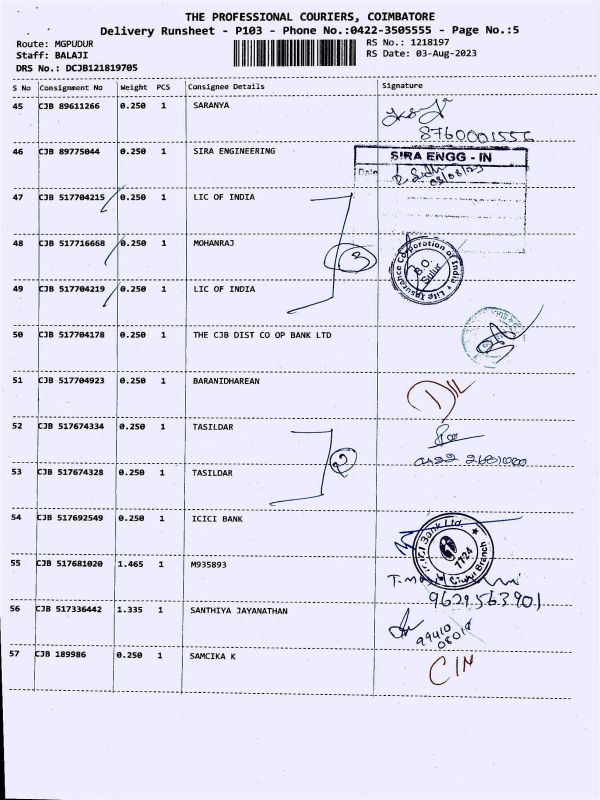 THE PROFESSIONAL COURIERS, COIMBATORE
Delivery Runsheet - P103 - Phone No.:0422-3505555 - Page No.:5
Route: MGPUDUR
RS No.: 1218197
Staff: BALAJI
RS Date: 03-Aug-2023
DRS No.: DCJB121819705
S No Consignment No Weight PCS Consignee Details Signature
45 CJB 89611266 0.250 1 SARANYA
8760001556
46 CJB 89775044 0.250 1 SIRA ENGINEERING
SIRA ENGG - IN
Date
03/08/23
47 CJB 517704215 0.250 1 LIC OF INDIA
48 CJB 517716668 0.250 1 MOHANRAJ
3
Life Insurance Corporation of India
B.O.
Sulur
49 CJB 517704219 0.250 1 LIC OF INDIA
50 CJB 517704178 0.250 1 THE CJB DIST CO OP BANK LTD
51 CJB 517704923 0.250 1 BARANIDHAREAN
D/L
52 CJB 517674334 0.250 1 TASILDAR
2
0422 2681000
53 CJB 517674328 0.250 1 TASILDAR
54 CJB 517692549 0.250 1 ICICI BANK
ICICI Bank Ltd.
7724
Branch
55 CJB 517681020 1.465 1 M935893
9629563901
56 CJB 517336442 1.335 1 SANTHIYA JAYANATHAN
99410
08014
57 CJB 189986 0.250 1 SAMCIKA K
CIN